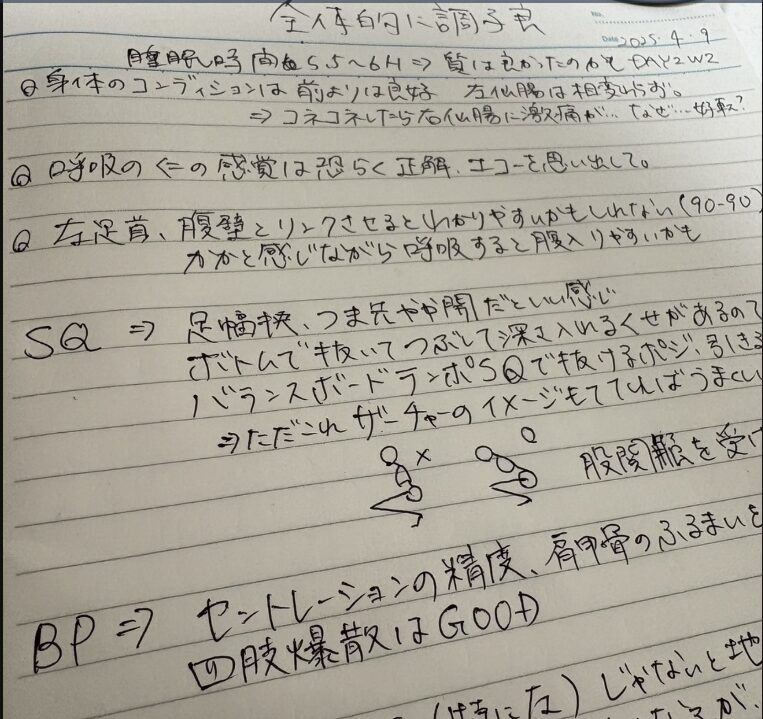 全体的に調子良
Date 2025・4・9
睡眠時間も5.5～6H⇒質は良かったのかも DAY2W2
身体のコンディションは前よりは良好 左仙腸は相変わらず。
⇒コネコネしたら右仙腸に激痛が…なぜ…好転?
呼吸の の感覚は恐らく正解、エコーを思い出して。
左足首、腹壁とリンクさせるとわかりやすいかもしれない(90-90)
かかと感じながら呼吸すると腹入りやすいかも
SQ ⇒ 足幅狭、つま先やや開だといい感じ
ボトムで抜いてつぶして深さ入れるくせがあるので
バランスボードランポSQで抜けるポジ、引きる
⇒ただこれザーチャーのイメージもてていればうまくい
× ○ 股関節を受け
BP ⇒ セントレーションの精度、肩甲骨のふるまいを
四肢爆散はGOOD
(特に左)じゃないと地